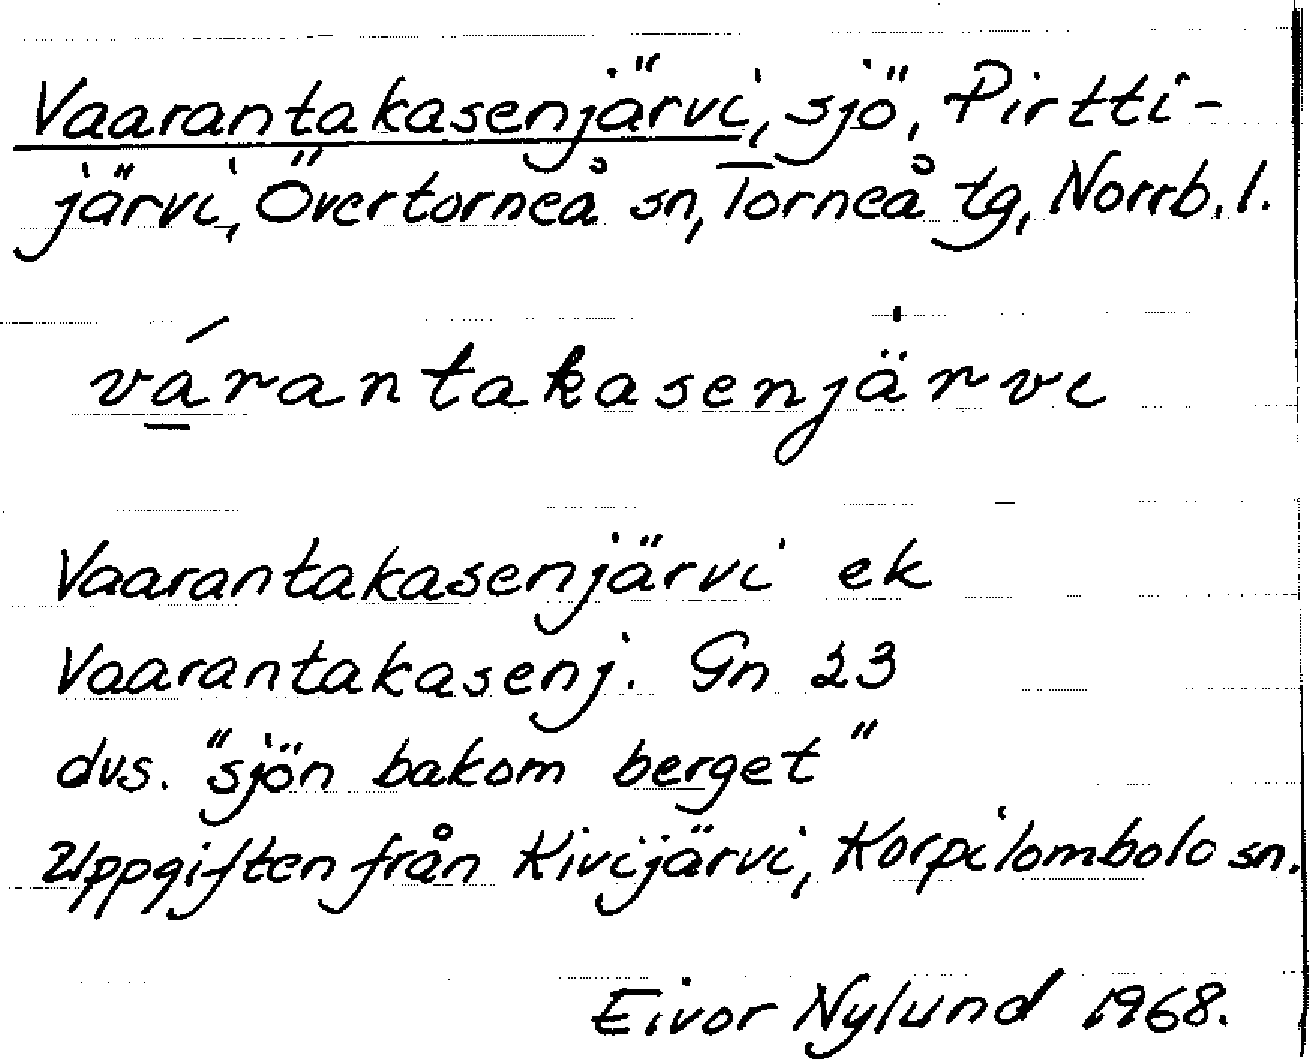 Vaarantakasenjärvi, sjö, Pirtti-
järvi, Övertorneå sn, Torneå tg, Norrb. l.
vá̱rantakasenjärvi
Vaarantakasenjärvi ek
Vaarantakasenj. Gn 23
dvs. "sjön bakom berget"
Uppgiften från Kivijärvi, Korpilombolo sn.
Eivor Nylund 1968.